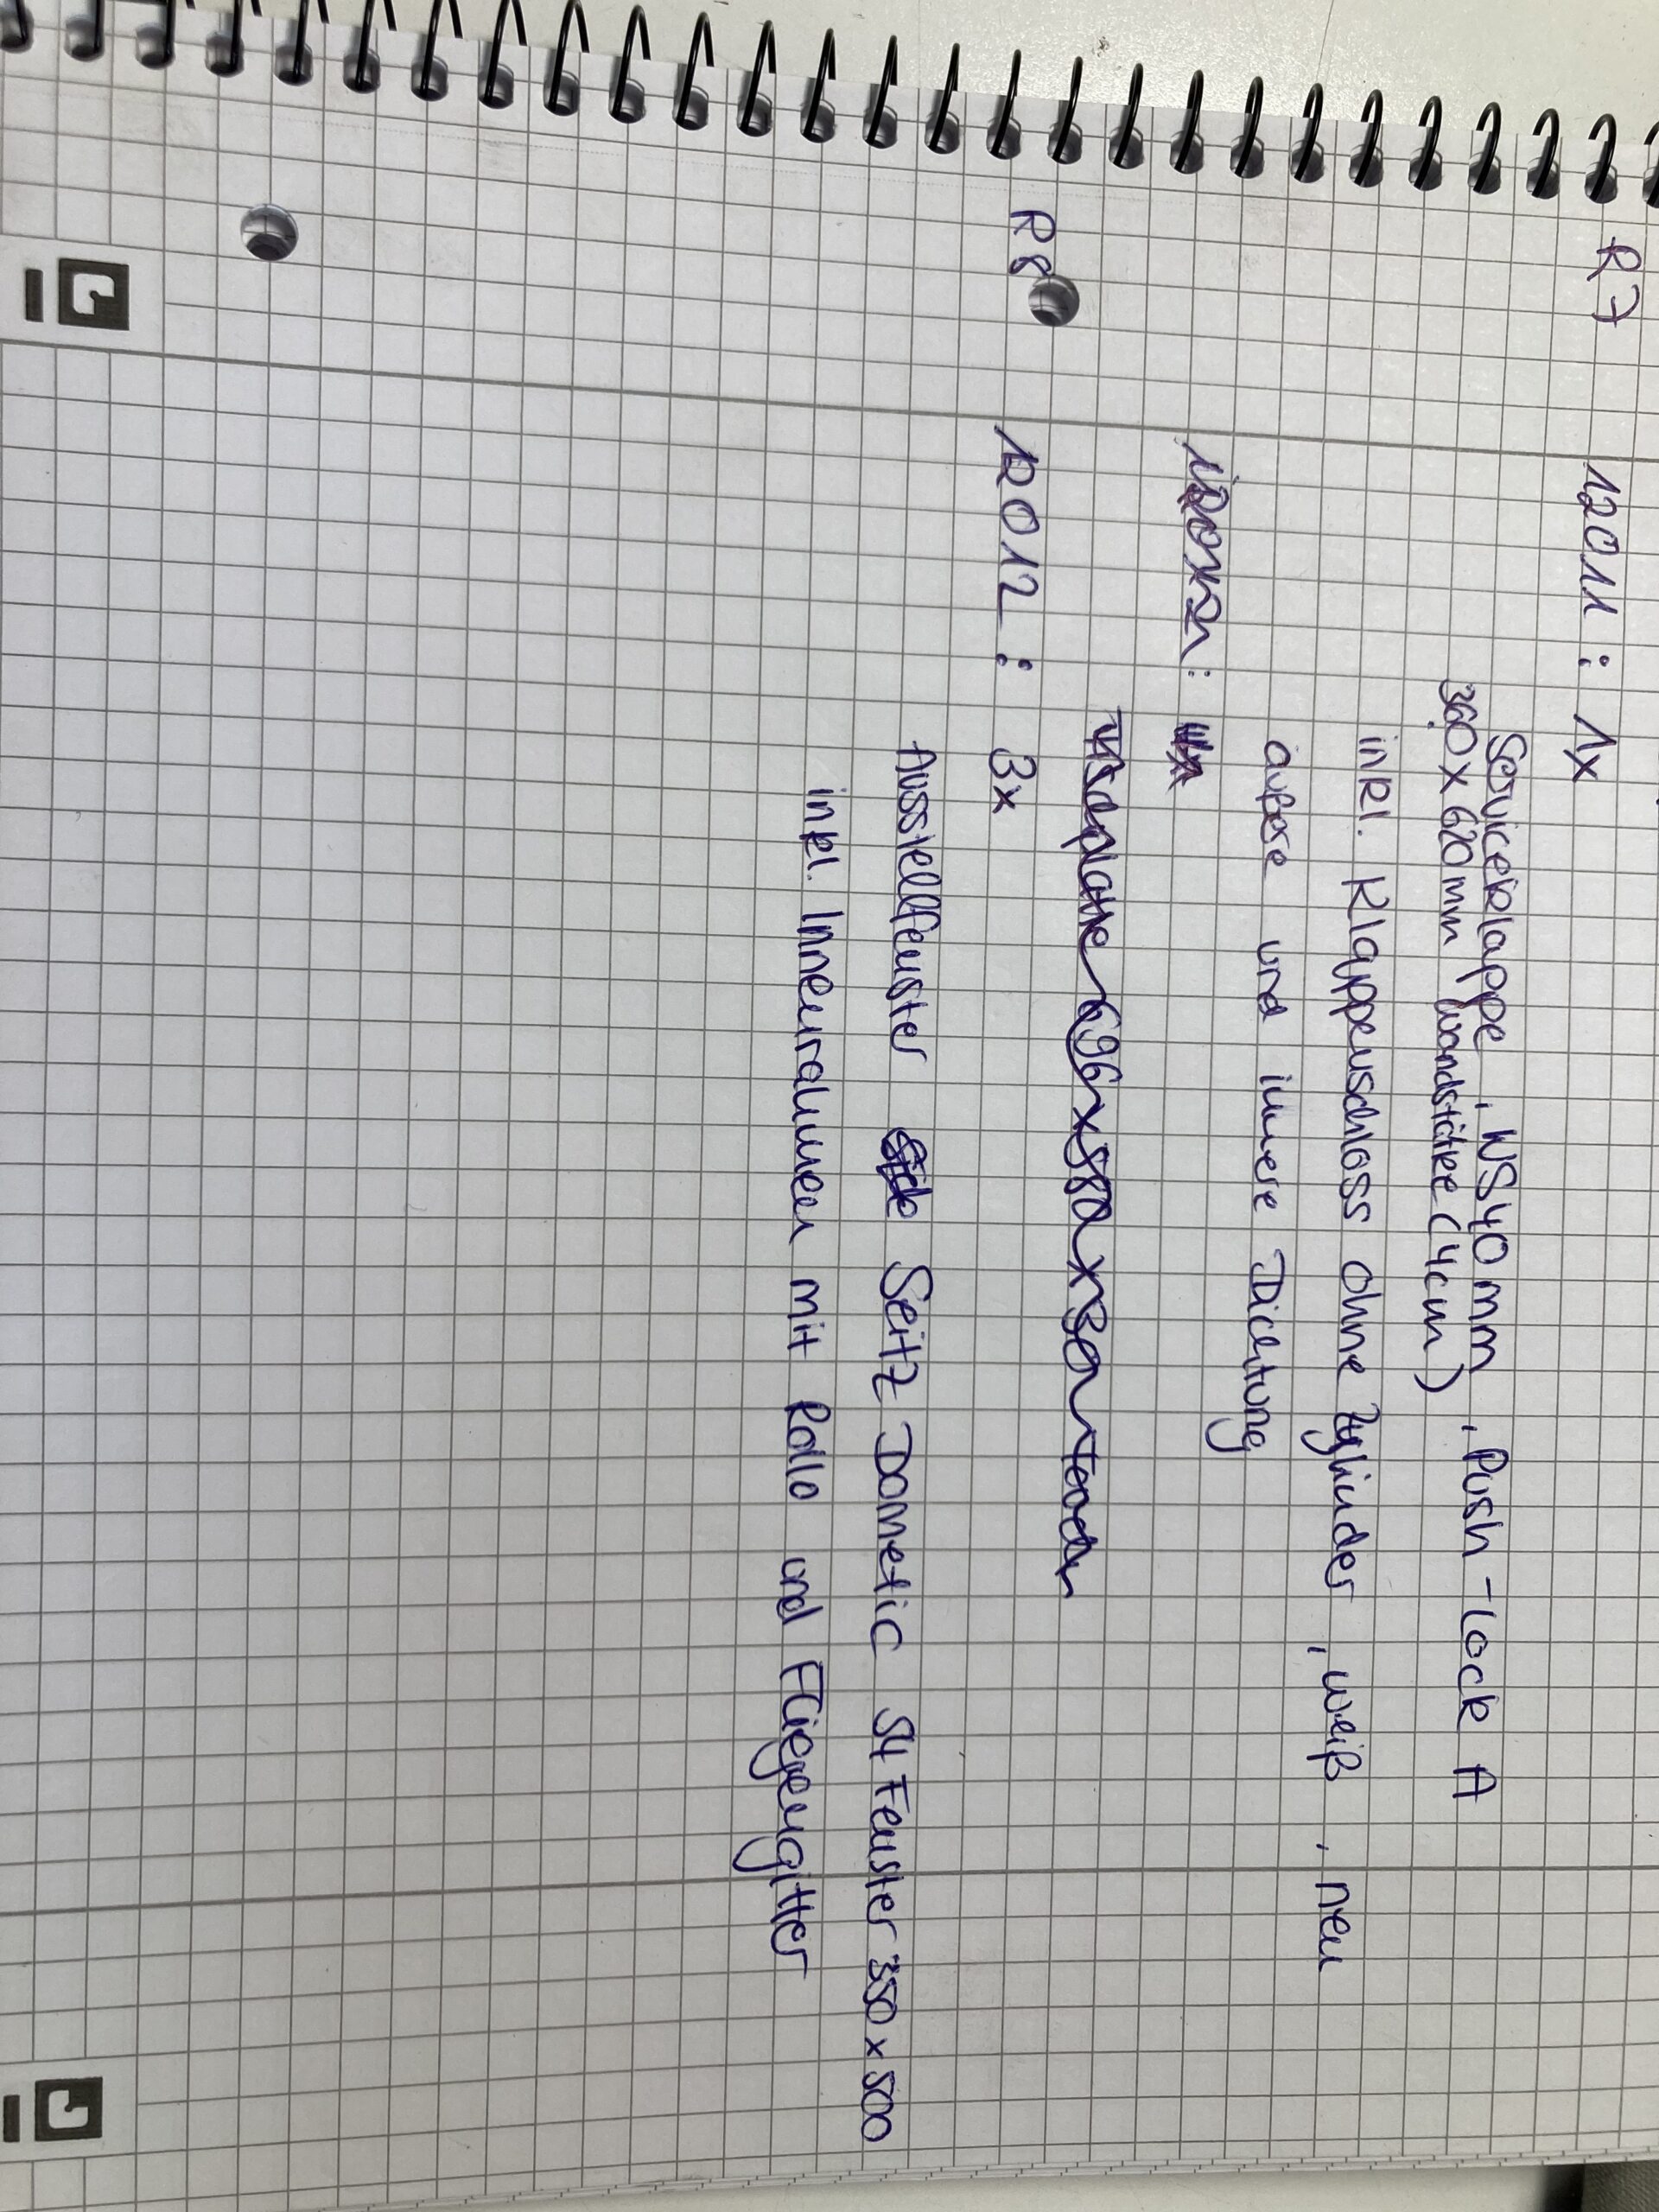 R7 12011 : 1x
Serviceklappe , WS 40 mm , Push-Lock A
360 x 620 mm Wandstärke (4cm)
inkl. Klappenschloss ohne Zylinder , weiß , neu
äußere und innere Dichtung
Tischplatte 696 x 880 x 30
R8 12012 : 3x
Ausstellfenster Seitz Dometic S4 Fenster 350 x 500
inkl. Innenrahmen mit Rollo und Fliegengitter